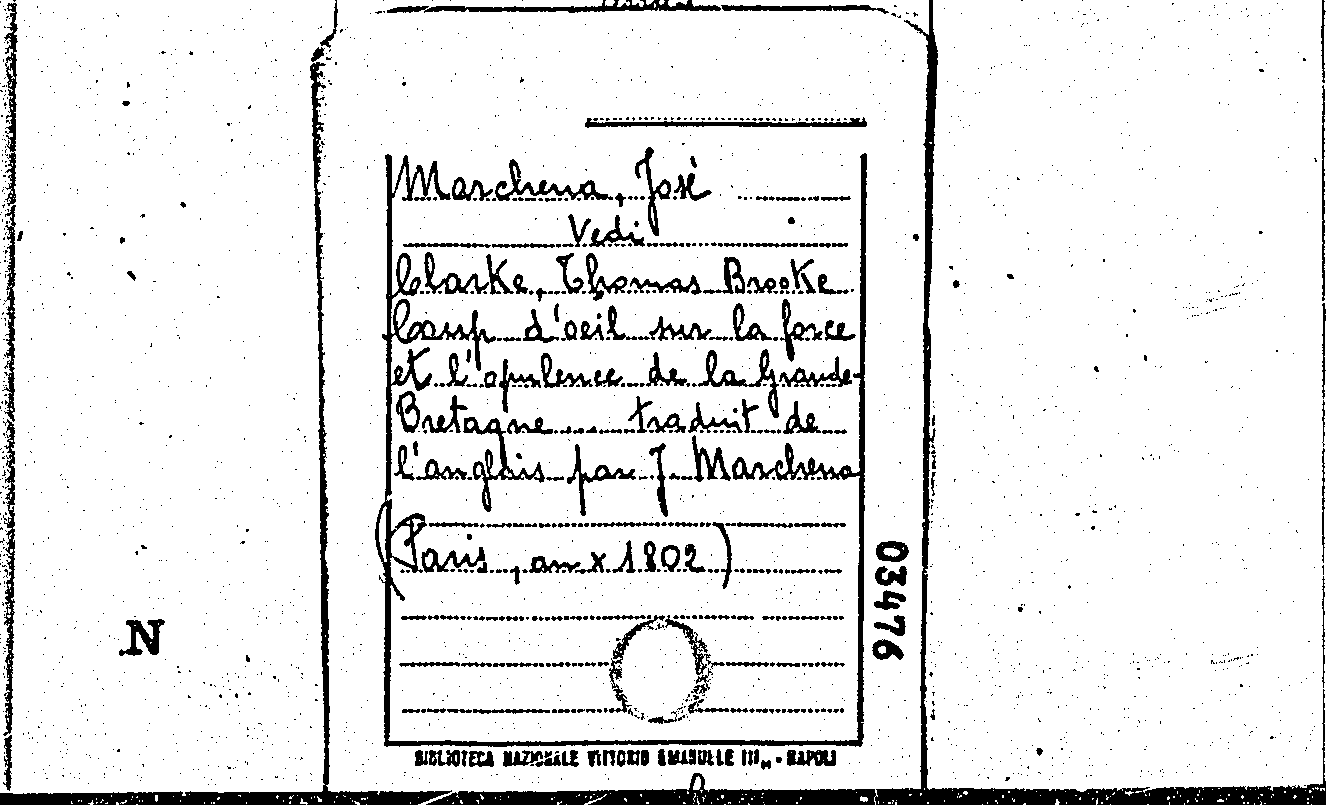 Marchena, José
Vedi
Clarke, Thomas Brooke
Coup d'oeil sur la force
et l'opulence de la Grande-
Bretagne ... traduit de
l'anglais par J. Marchena
(Paris, an x 1802)
03476
N
BIBLIOTECA NAZIONALE VITTORIO EMANUELE III,, - NAPOLI